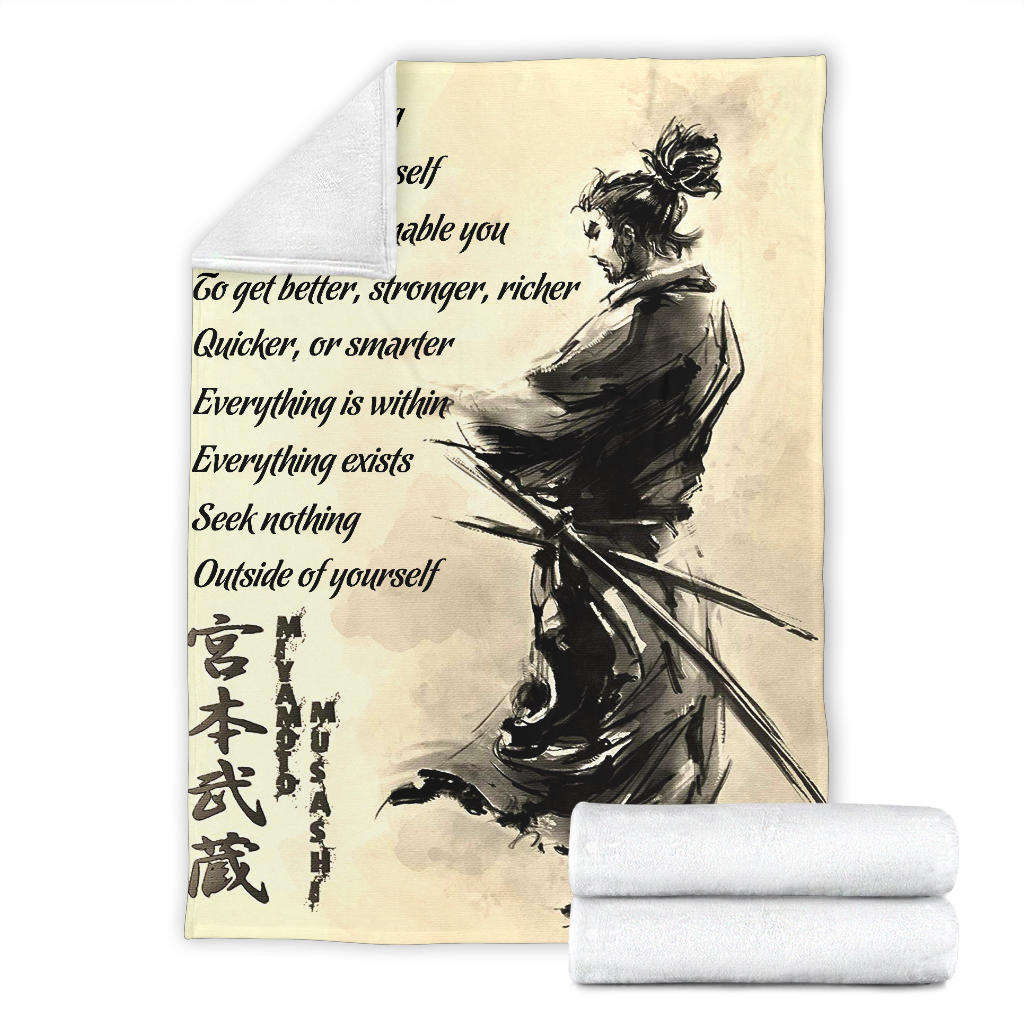 self
you
To get better, stronger, richer
Quicker, or smarter
Everything is within
Everything exists
Seek nothing
Outside of yourself
宮本武蔵
MIYAMOTO
MUSASHI